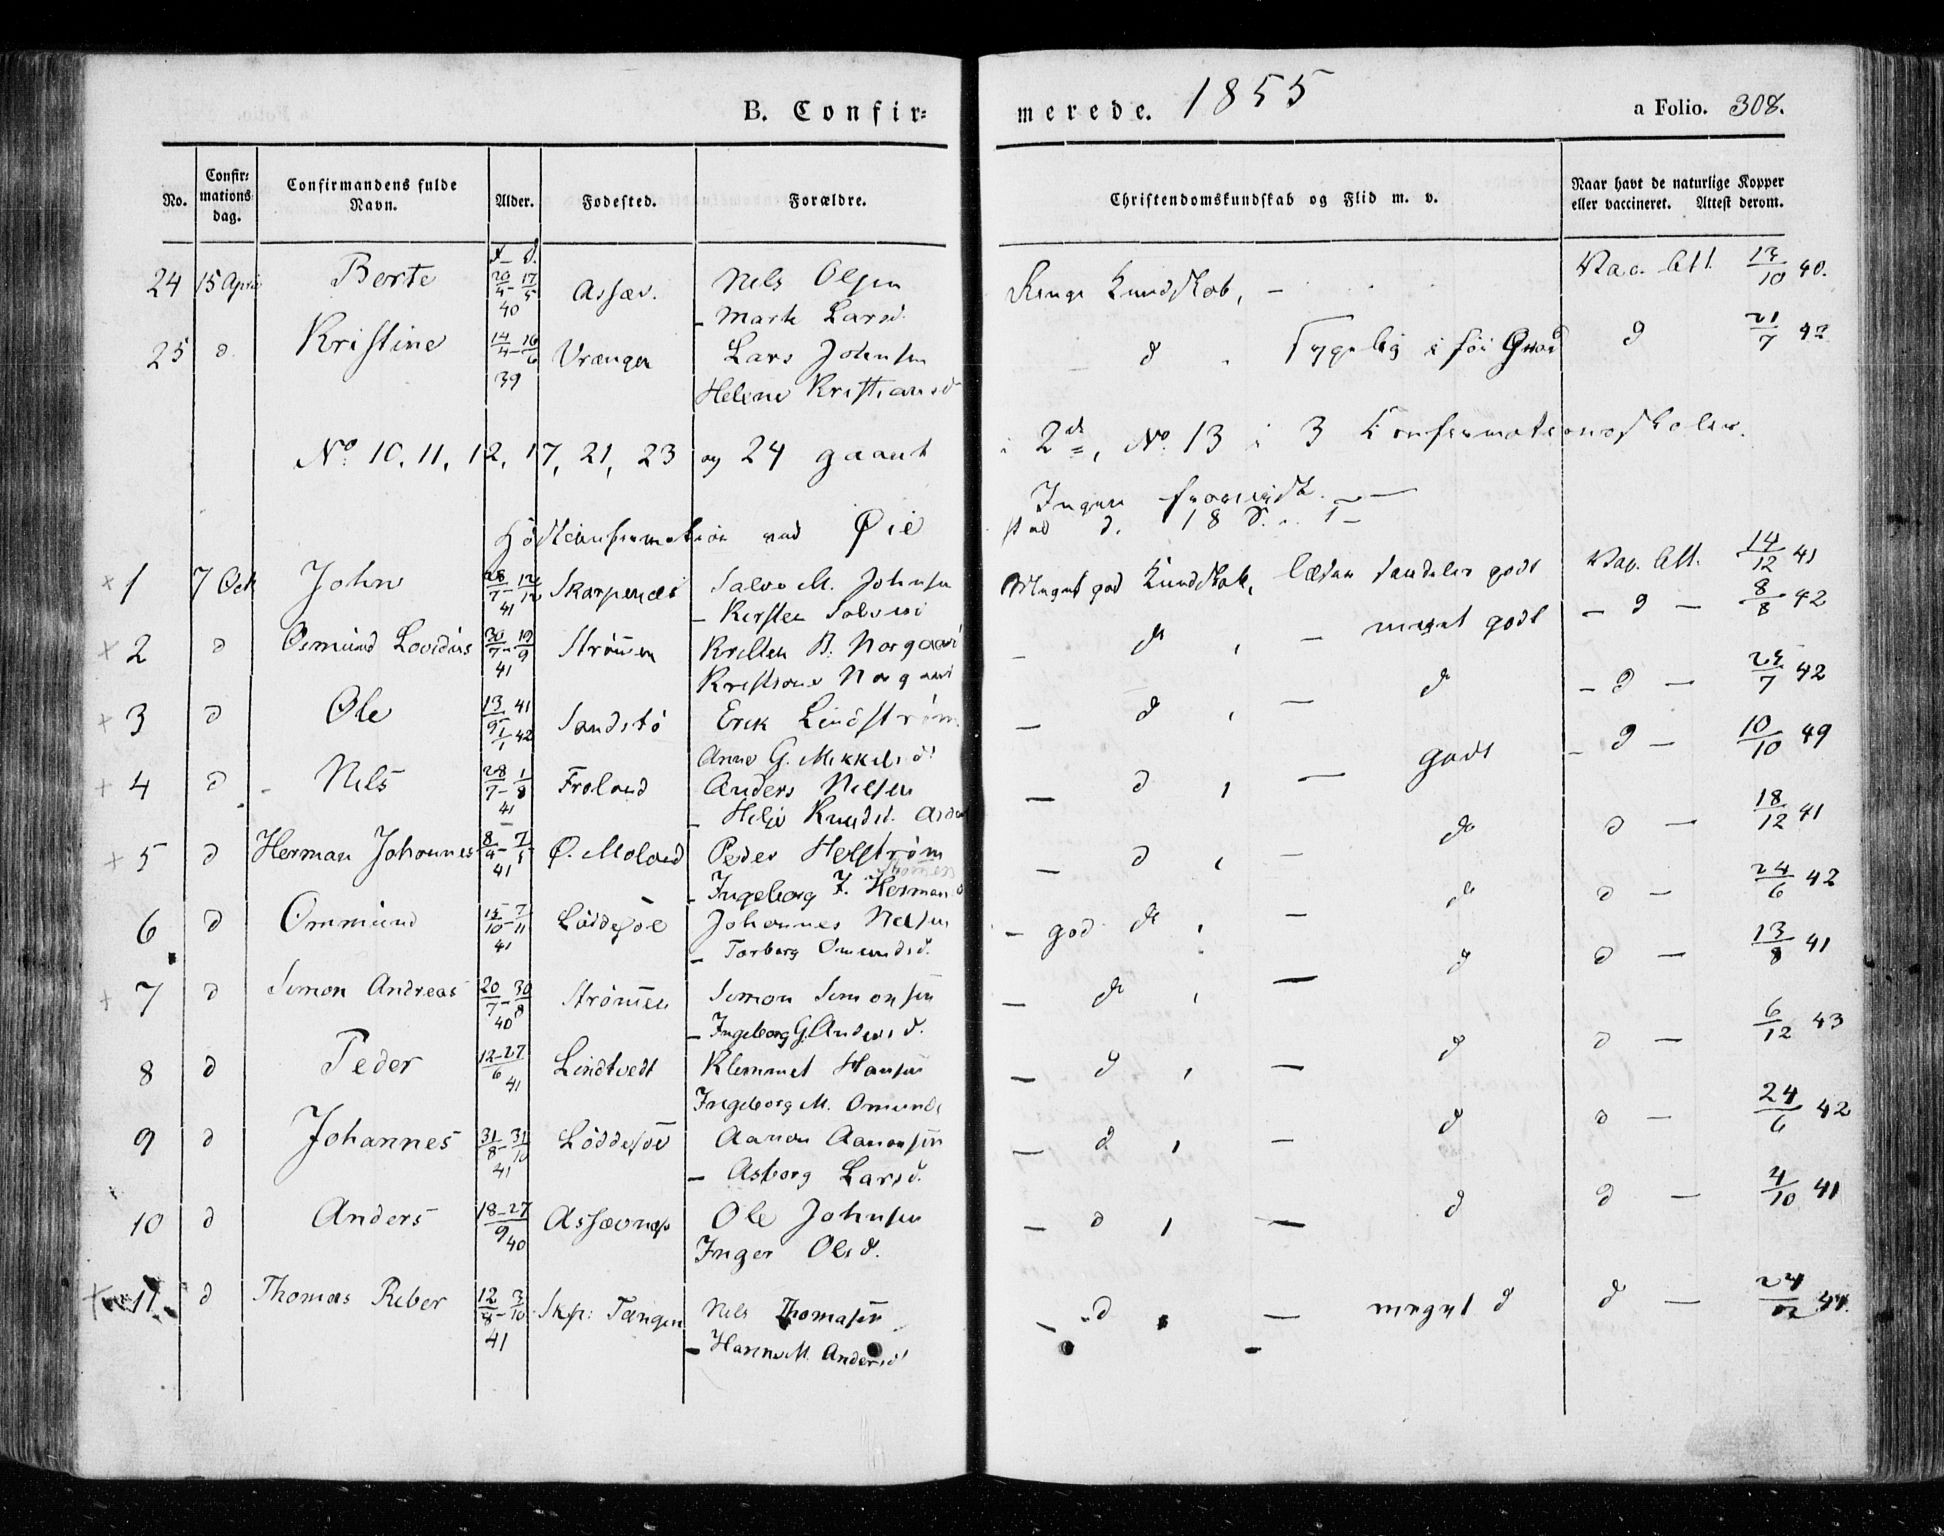 B. Confir=
merede. 1855
a Folio. 308.
No.
Confir=
mations
dag.
Confirmandens fulde
Navn.
Alder.
Fødested.
Forældre.
Christendomskundskab og Flid m. v.
Naar havt de naturlige Kopper
eller vaccineret. Attest derom.
f. d.
24 15 April Berte 20/4 - 17/5 40 Assæv. Nels Olsen
- Marte Larsd. Ringe Kundskab, - Vac. Att. 13/10 40.
25 d Kristine 14/4 - 16/6 39 Vrængen Lars Johnsen
Helene Kristiansd d d 21/7 42
No. 10, 11, 12, 17, 21, 23 og 24 gaaet
i 2de, No. 13 i 3 Confirmationsskoler.
Ingen
Høstconfirmation ved Øie
1 7 Oct John 28/7 - 12/12 41 Skarpenæs Salve M. Johnsen
- Kirsten Meget god Kundskab, læser godt Vac. Att. 14/12 41
2 d Osmund Lovidius 30/7 - 19/9 41 Strømmen
- d, - meget godt - d - 8/8 42
3 d Ole 13/9 41 1/1 42 Sandstø Erik Lindstrøm
Anne G. Mikkelsd. - d, - d - d - 25/7 42
4 d Nils 28/7 - 1/8 41 Froland Anders Nelsen
- Knudsd. - d, - godt - d - 10/10 49
5 d Herman Johannes 8/4 - 7/5 41 Ø. Moland Peder Helstrøm
- Ingeborg J. Hermansd - d, - do d - 18/12 41
6 d Ommund 15/10 - 7/11 41 Løddesøl Johannes Nelsen
- Torborg Omundsd. - god d, - d d - 24/6 42
7 d Simon Andreas 20/7 - 30/8 40 Strømmen Simon Simonsen
- Ingeborg G. Andersd. - d, - d d - 13/8 41
8 d Peder 12-27/6 41 Lindtvedt Klemmet Hansen
Ingeborg M. Omunds - d, - d d - 6/12 43
9 d Johannes 31/8 - 31/10 41 Løddesøl Aanon Aanonsen
- Asborg Larsd. - d, - d d - 24/6 42
10 d Anders 18-27/9 40 Assævnæs Ole Johnsen
Inger Olsd. - d, - d d - 4/10 41
11. d Thomas Reber 12/8 - 3/10 41 Skp: Tangen Nels Thomasen
- Hanne M. Andersd - d, - meget d d - 24/12 41.